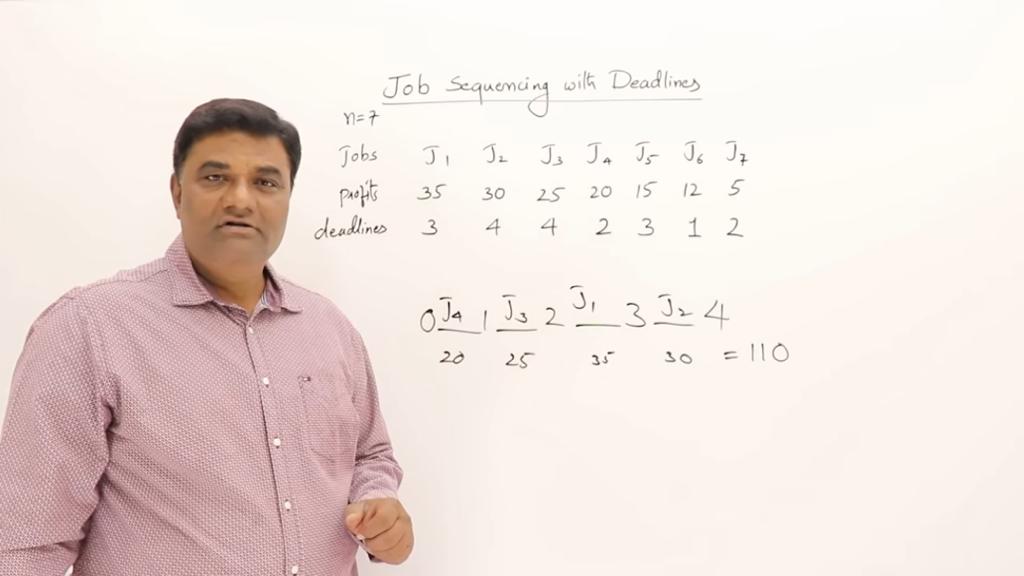 Job Sequencing with Deadlines
n=7
Jobs J1 J2 J3 J4 J5 J6 J7
profits 35 30 25 20 15 12 5
deadlines 3 4 4 2 3 1 2
0 J4 1 J3 2 J1 3 J2 4
20 25 35 30 = 110